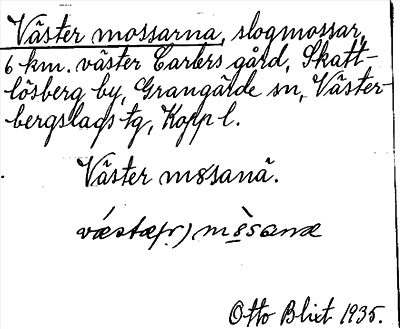 Väster mossarna, slogmossar,
6 km. väster Earlers gård, Skatt-
lösberg by, Grangärde sn, Väster-
bergslags tg, Kopp l.
Väster måsanä.
væstæ(r) mòsanæ
Otto Blixt 1935.